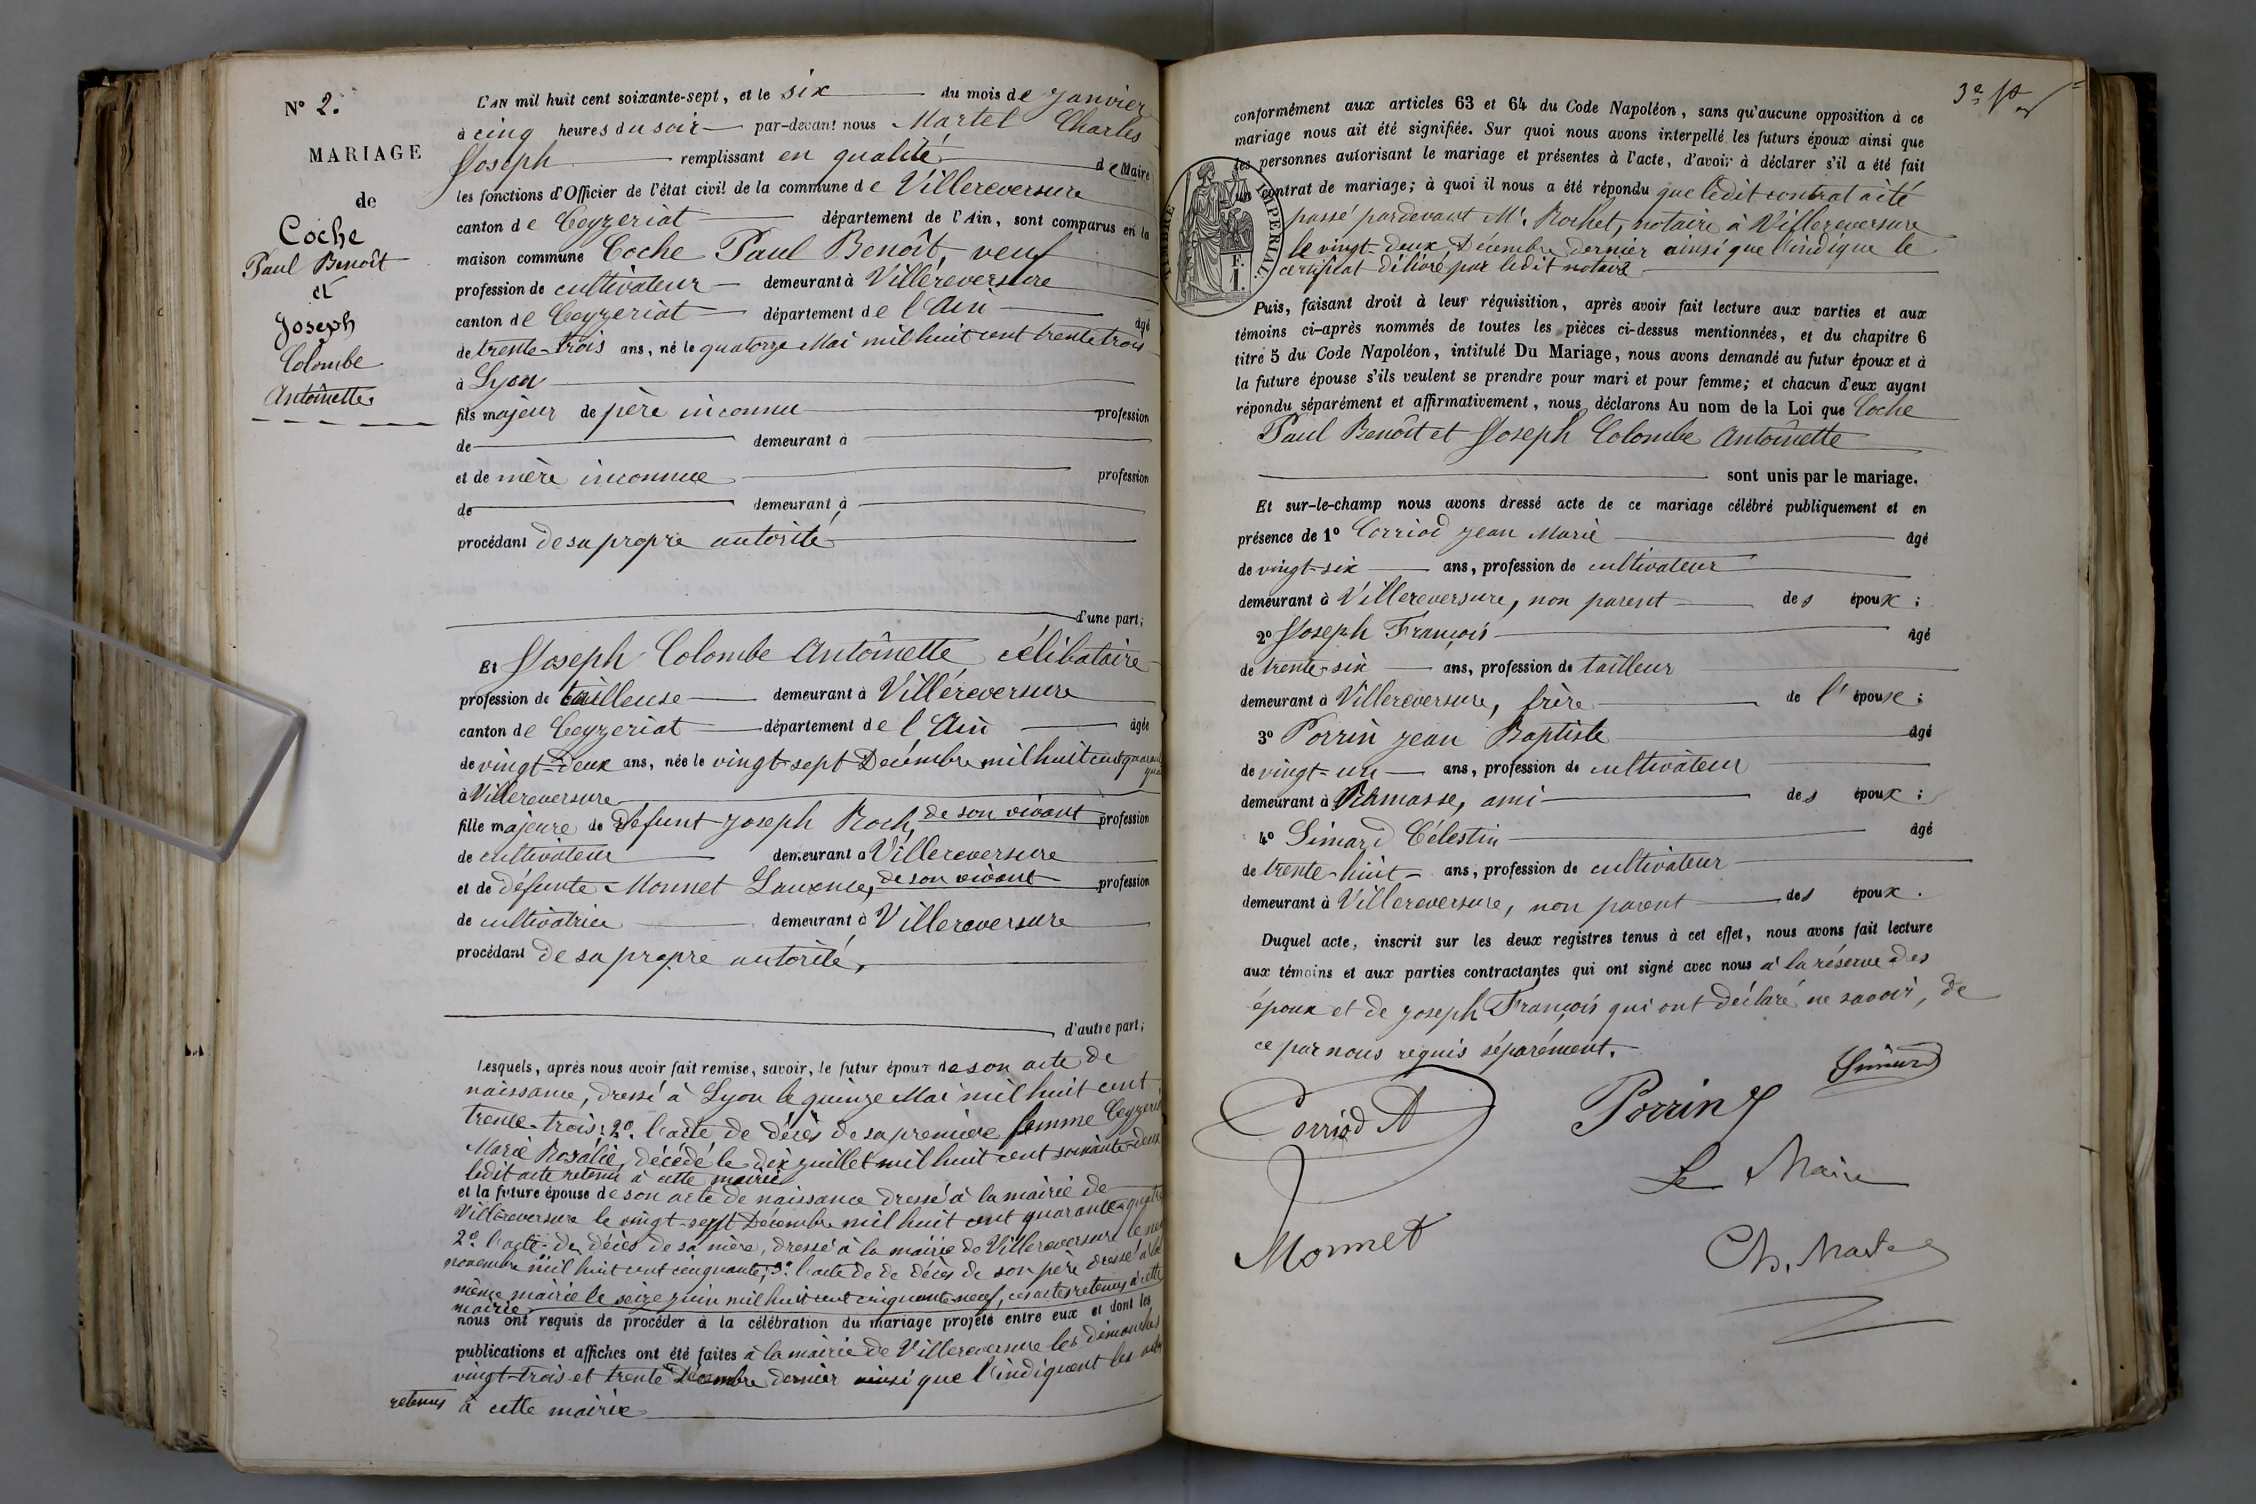 N° 2.
MARIAGE
de
Coche
Paul Benoît
et
Joseph
Colombe
Antoinette
L'AN mil huit cent soixante-sept, et le six du mois de Janvier
à cinq heures du soir par-devant nous Martel Charles
Joseph remplissant en qualité de Maire
les fonctions d'Officier de l'état civil de la commune de Villereversure
canton de Ceyzeriat département de l'Ain, sont comparus en la
maison commune Coche Paul Benoît, veuf
profession de cultivateur demeurant à Villereversure
canton de Ceyzeriat département de l'Ain âgé
de trente-trois ans, né le quatorze Mai mil huit cent trente trois
à Lyon
fils majeur de père inconnu profession
de demeurant à
et de mère inconnue profession
de demeurant à
procédant de sa propre autorité
d'une part;
Et Joseph Colombe Antoinette célibataire
profession de tailleuse demeurant à Villereversure
canton de Ceyzeriat département de l'Ain âgée
de vingt-deux ans, née le vingt-sept Décembre mil huit cent quarante
à Villereversure
fille majeure de défunt Joseph Roch, de son vivant profession
de cultivateur demeurant à Villereversure
et de défunte Monnet Laurence, de son vivant profession
de cultivatrice demeurant à Villereversure
procédant de sa propre autorité,
d'autre part;
Lesquels, après nous avoir fait remise, savoir, le futur époux de son acte de
naissance, dressé à Lyon le quinze Mai mil huit cent
trente-trois; 2° l'acte de décès de sa première femme Ceyzeriat
Marie Rosalie, décédé le dix juillet mil huit cent soixante-deux
ledit acte retenu à cette mairie
et la future épouse de son acte de naissance dressé à la mairie de
Villereversure le vingt-sept Décembre mil huit cent quarante-quatre
2° l'acte de décès de sa mère, dressé à la mairie de Villereversure le neuf
novembre mil huit cent cinquante; 3° l'acte de de décès de son père dressé à la
même mairie le seize juin mil huit cent cinquante-neuf, ces actes retenus à cette
mairie
nous ont requis de procéder à la célébration du mariage projeté entre eux et dont les
publications et affiches ont été faites à la mairie de Villereversure les dimanches
vingt-trois et trente Décembre dernier ainsi que l'indiquent les actes
retenus à cette mairie
conformément aux articles 63 et 64 du Code Napoléon, sans qu'aucune opposition à ce
mariage nous ait été signifiée. Sur quoi nous avons interpellé les futurs époux ainsi que
les personnes autorisant le mariage et présentes à l'acte, d'avoir à déclarer s'il a été fait
un contrat de mariage; à quoi il nous a été répondu que ledit contrat a été
passé pardevant Me. Rochet, notaire à Villereversure
le vingt-deux Décembre dernier ainsi que l'indique le
certificat délivré par ledit notaire
TIMBRE IMPERIAL.
F.
1.
Puis, faisant droit à leur réquisition, après avoir fait lecture aux parties et aux
témoins ci-après nommés de toutes les pièces ci-dessus mentionnées, et du chapitre 6
titre 5 du Code Napoléon, intitulé Du Mariage, nous avons demandé au futur époux et à
la future épouse s'ils veulent se prendre pour mari et pour femme; et chacun d'eux ayant
répondu séparément et affirmativement, nous déclarons Au nom de la Loi que Coche
Paul Benoît et Joseph Colombe Antoinette
sont unis par le mariage.
Et sur-le-champ nous avons dressé acte de ce mariage célébré publiquement et en
présence de 1° Corriod Jean Marie âgé
de vingt-six ans, profession de cultivateur
demeurant à Villereversure, non parent des époux;
2° Joseph François âgé
de trente-six ans, profession de tailleur
demeurant à Villereversure, frère de l'épouse;
3° Porrin Jean Baptiste âgé
de vingt-un ans, profession de cultivateur
demeurant à Ramasse, ami des époux;
4° Simard Célestin âgé
de trente-huit ans, profession de cultivateur
demeurant à Villereversure, non parent des époux.
Duquel acte, inscrit sur les deux registres tenus à cet effet, nous avons fait lecture
aux témoins et aux parties contractantes qui ont signé avec nous à la réserve des
époux et de Joseph François qui ont déclaré ne savoir, de
ce par nous requis séparément.
Simard
Corriod
Porrin
Le Maire
Monnet
Ch. Martel